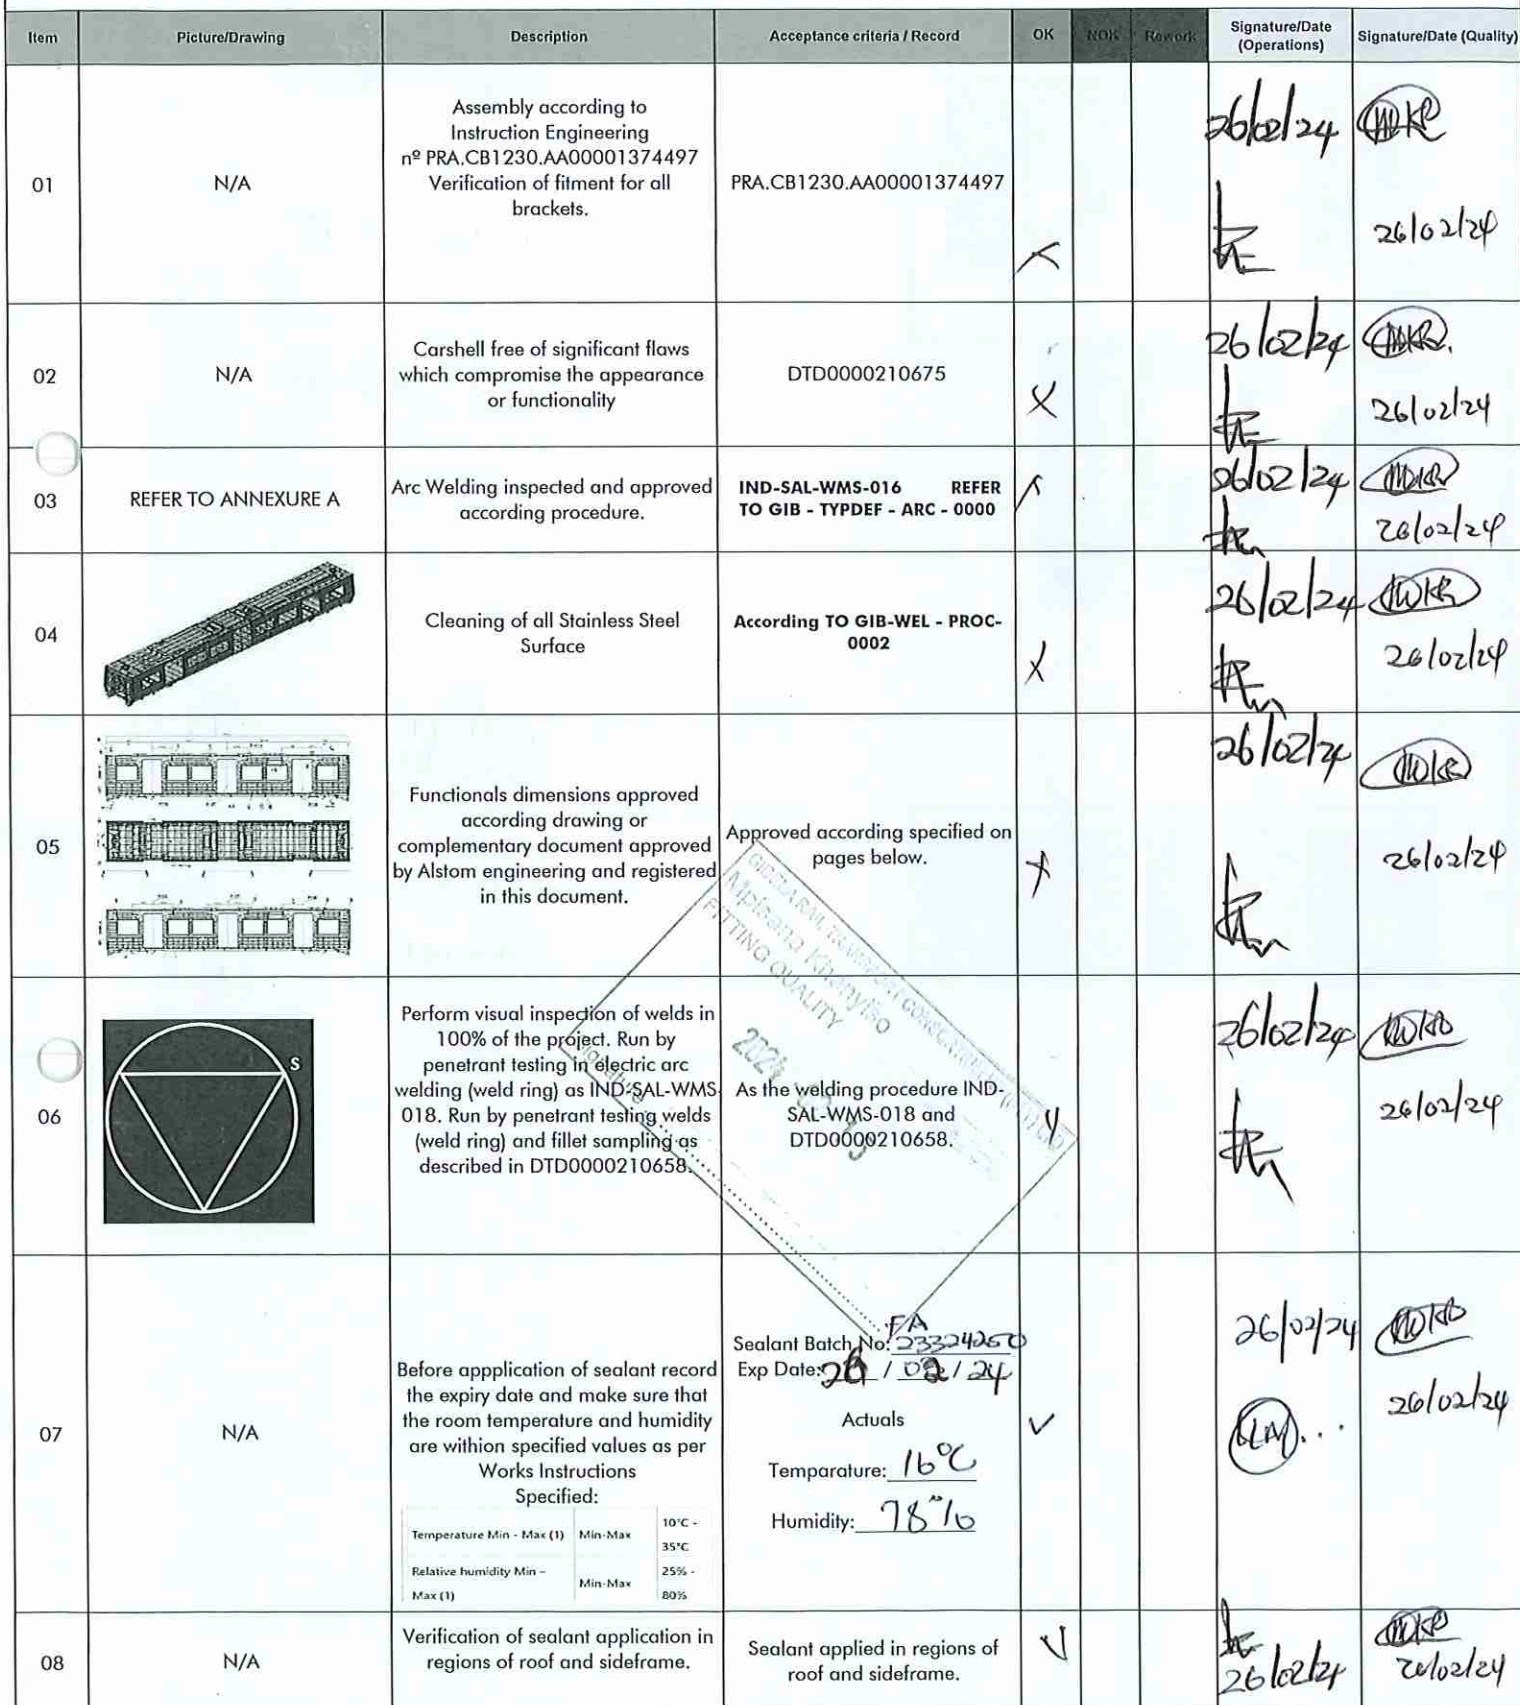 Item Picture/Drawing Description Acceptance criteria / Record OK NOK Rework Signature/Date (Operations) Signature/Date (Quality)
01
N/A
Assembly according to
Instruction Engineering
nº PRA.CB1230.AA00001374497
Verification of fitment for all
brackets.
PRA.CB1230.AA00001374497
X
26/02/24
26/02/24
02
N/A
Carshell free of significant flaws
which compromise the appearance
or functionality
DTD0000210675
X
26/02/24
26/02/24
03
REFER TO ANNEXURE A
Arc Welding inspected and approved
according procedure.
IND-SAL-WMS-016 REFER
TO GIB - TYPDEF - ARC - 0000
26/02/24
26/02/24
04
Cleaning of all Stainless Steel
Surface
According TO GIB-WEL - PROC-
0002
X
26/02/24
26/02/24
05
Functionals dimensions approved
according drawing or
complementary document approved
by Alstom engineering and registered
in this document.
Approved according specified on
pages below.
X
26/02/24
26/02/24
Mpisana Khanyiso
FITTING QUALITY
06
S
Perform visual inspection of welds in
100% of the project. Run by
penetrant testing in electric arc
welding (weld ring) as IND-SAL-WMS-
018. Run by penetrant testing welds
(weld ring) and fillet sampling as
described in DTD0000210658.
As the welding procedure IND-
SAL-WMS-018 and
DTD0000210658.
26/02/24
26/02/24
07
N/A
Before appplication of sealant record
the expiry date and make sure that
the room temperature and humidity
are withion specified values as per
Works Instructions
Specified:
Temperature Min - Max (1) Min-Max 10°C - 35°C
Relative humidity Min – Max (1) Min-Max 25% - 80%
FA
Sealant Batch No: 23324250
Exp Date: / 02 / 24
Actuals
Temparature: 16°C
Humidity: 78%
26/02/24
26/02/24
08
N/A
Verification of sealant application in
regions of roof and sideframe.
Sealant applied in regions of
roof and sideframe.
26/02/24
26/02/24